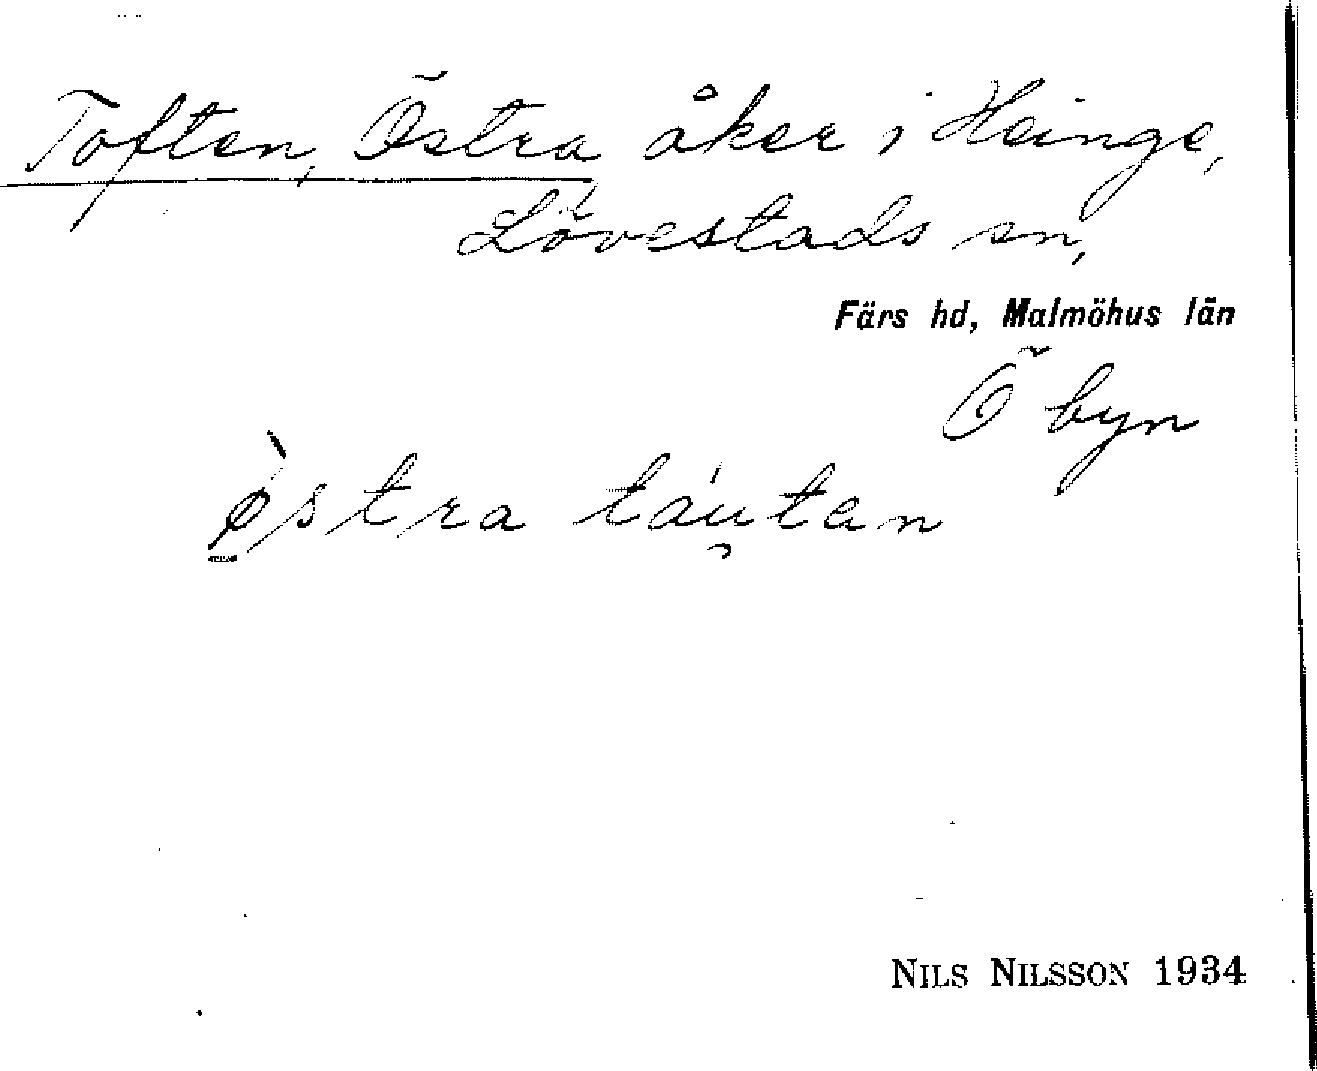 Toften, Östra åker i Heinge,
Lövestads sn,
Färs hd, Malmöhus län
Ö byn
ø̀stra táu̯tan
NILS NILSSON 1934